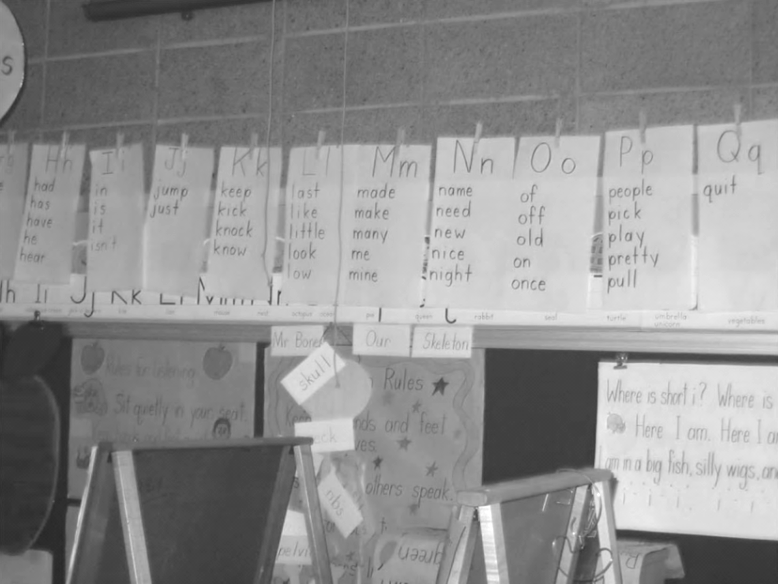 s
Hh
had
has
have
he
hear
Ii
in
is
it
isn't
Jj
jump
just
Kk
keep
kick
knock
know
Ll
last
like
little
look
low
Mm
made
make
many
me
mine
Nn
name
need
new
nice
night
Oo
of
off
old
on
once
Pp
people
pick
play
pretty
pull
Qq
quit
Ii Jj Kk
rabbit
turtle
umbrella
unicorn
vegetables
Mr. Bones
Our
Skeleton
skull
ribs
Rules for Listening
Sit quietly in your seat.
Rules
and feet
others speak.
green
Where is short i? Where is
Here I am. Here I am
am in a big fish, silly wigs, an
i i i i i